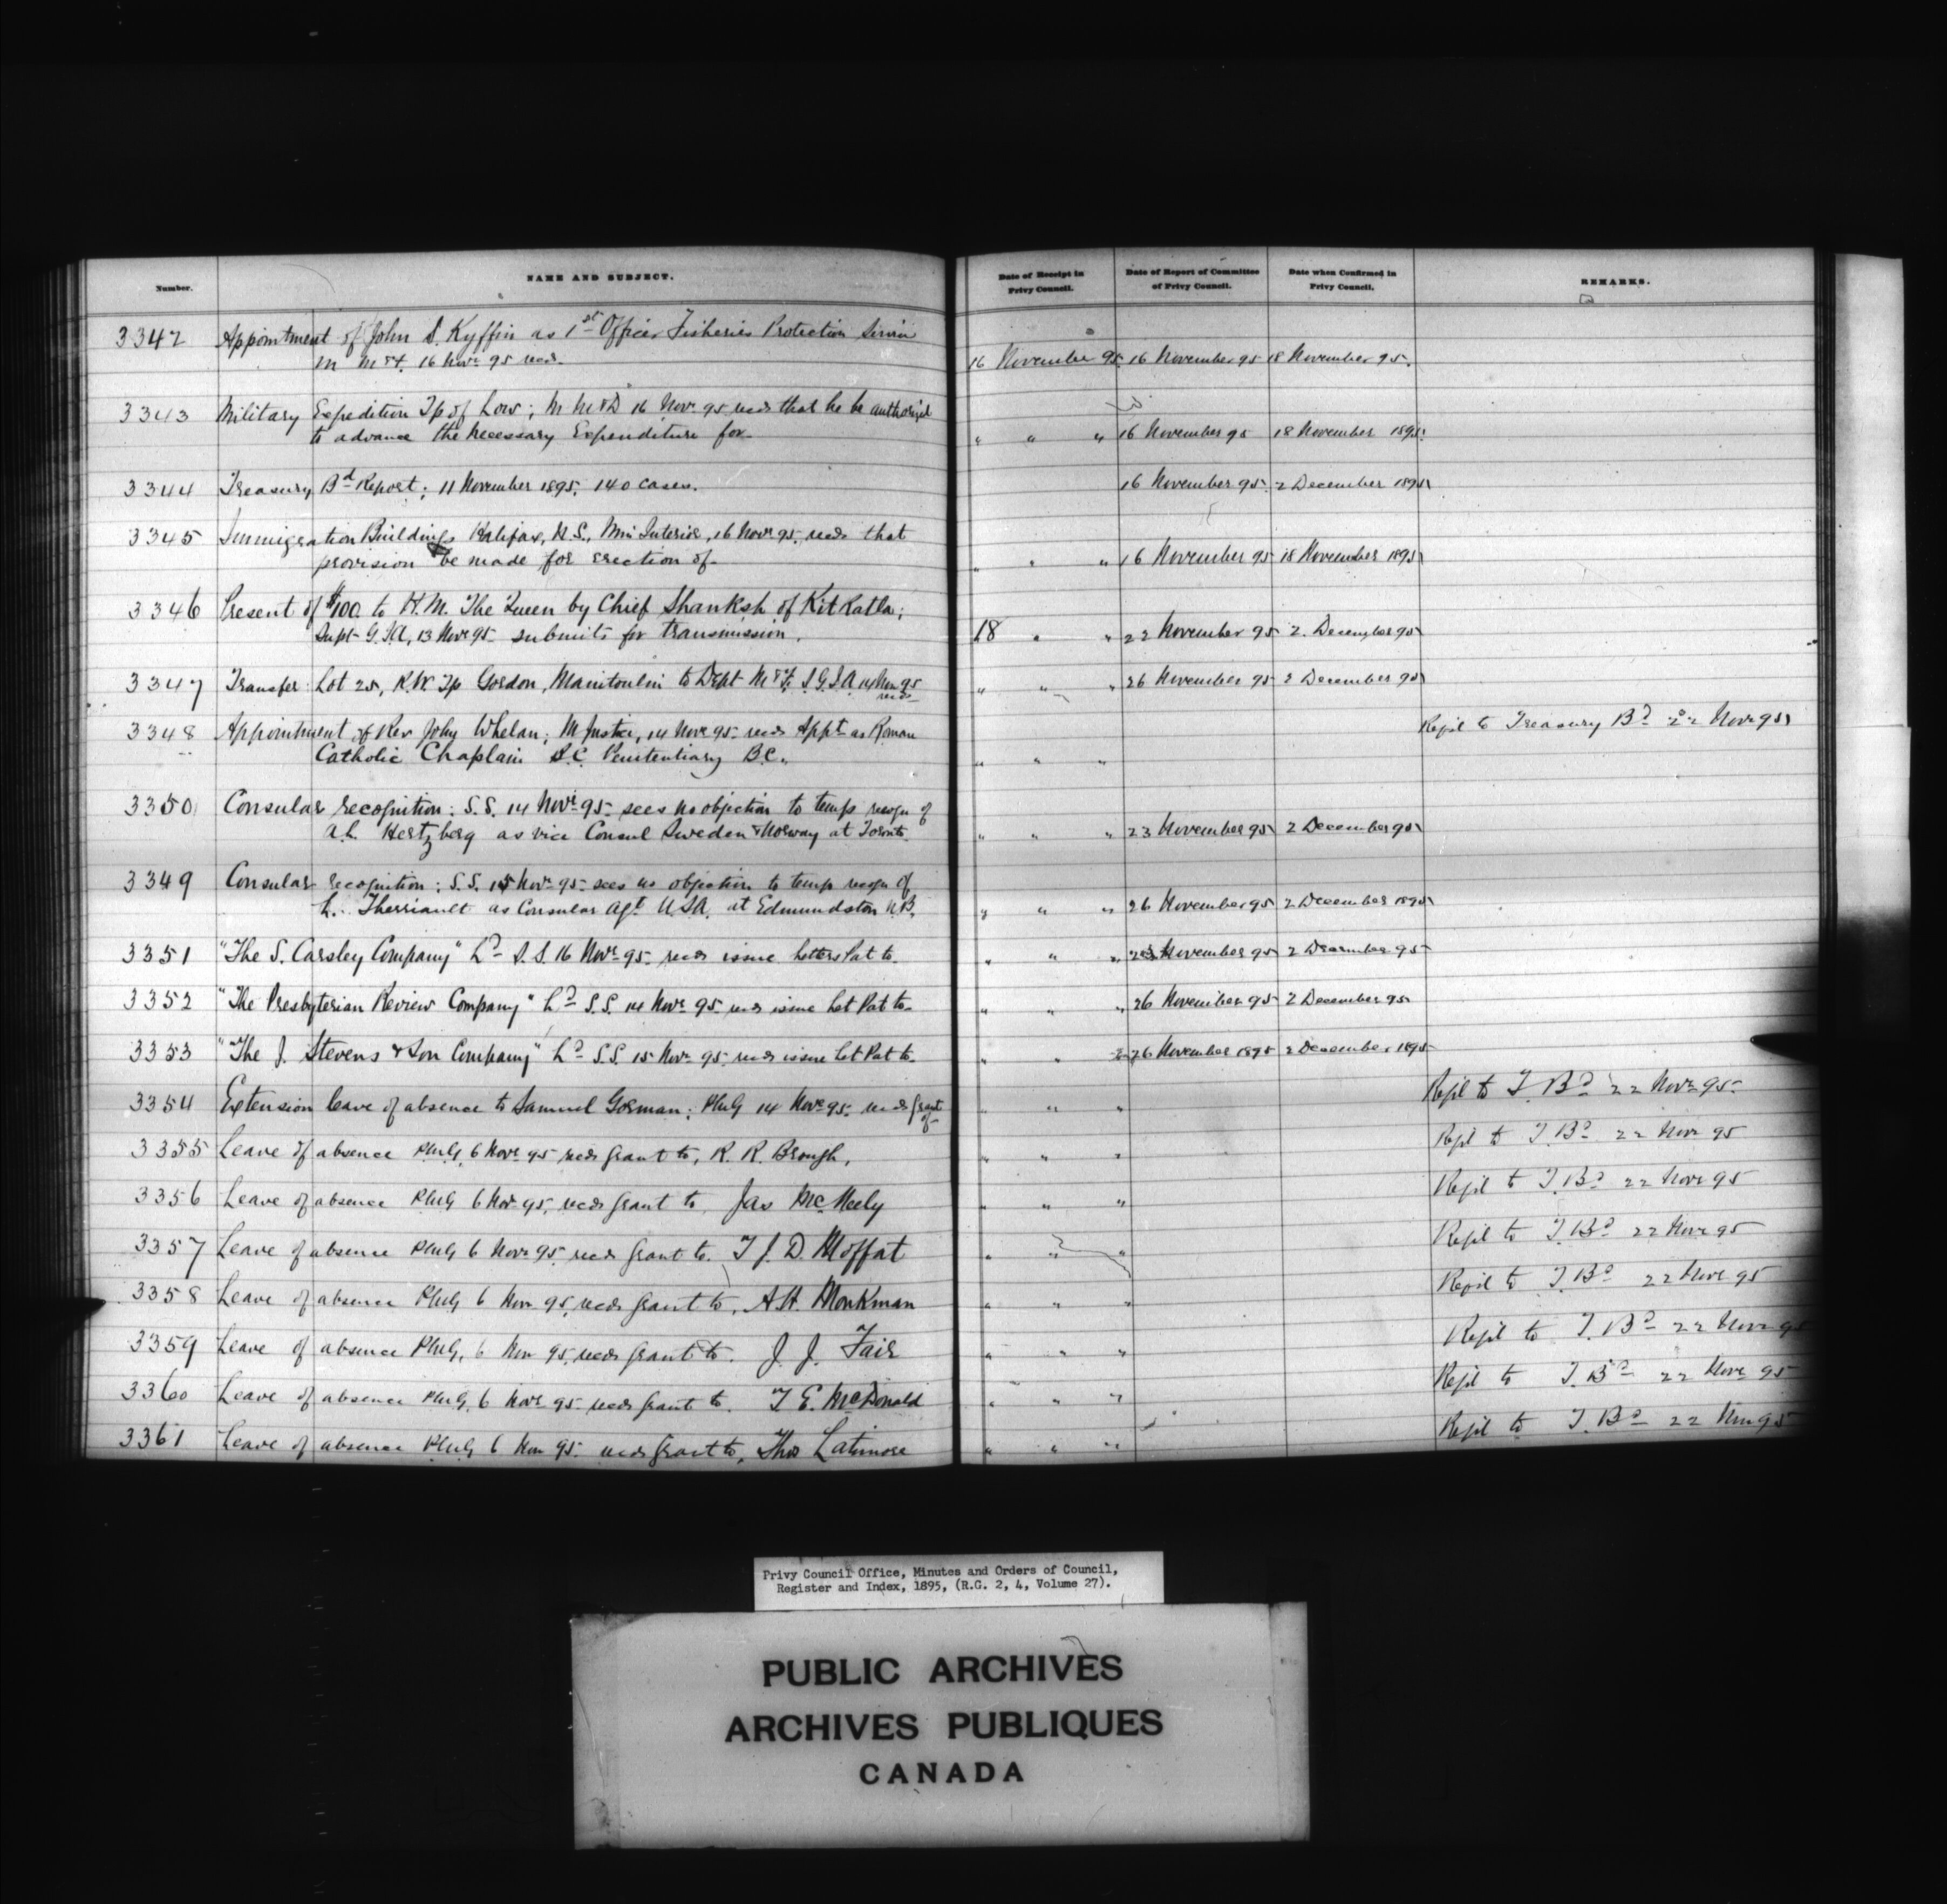 Number.
NAME AND SUBJECT.
Date of Receipt in Privy Council.
Date of Report of Committee of Privy Council.
Date when Confirmed in Privy Council.
REMARKS.
3342 Appointment of John S. Kyffin as 1st Officer Fisheries Protection Service
M M & F. 16 Novr 95 recds. 16 November 95. 16 November 95 18 November 95.
3343 Military Expedition Tp of Low; M M & D 16 Novr 95 recds that he be authorized
to advance the necessary Expenditure for " " " 16 November 95 18 November 1895.
3344 Treasury Bd Report; 11 November 1895. 140 cases. 16 November 95. 2 December 1895
3345 Immigration Buildings Halifax, N.S., Min Interior, 16 Novr 95. recds that
provision be made for erection of. " " " 16 November 95 18 November 1895
3346 Present of $100. to H.M. The Queen by Chief Shanksh of Kit Katla;
Supt G.I.A, 13 Novr 95 submits for transmission. 18 " " 22 November 95 2. December 95
3347 Transfer Lot 25, R.W. Tp Gordon, Manitoulin to Dept M & F. S.G.I.A 14 Nov 95
recds " " " 26 November 95 2 December 95
3348 Appointment of Rev John Whelan; M Justice, 14 Novr 95 recds Appt as Roman Refd to Treasury Bd 22 Novr 95
Catholic Chaplain B.C. Penitentiary B.C. " " "
3350 Consular recognition: S.S. 14 Novr 95 sees no objection to temp recogn of
A.L. Hertzberg as vice Consul Sweden & Norway at Toronto " " " 23 November 95 2 December 95
3349 Consular recognition: S.S. 15 Novr 95 sees no objection to temp recogn of
L. Therriault as Consular Agt U.S.A. at Edmundston N.B. " " " 26 November 95 2 December 1895
3351 "The S. Carsley Company" Ld S.S. 16 Novr 95 recds issue Letters Pat to. " " " 23 November 95 2 December 95
3352 "The Presbyterian Review Company" Ld S.S. 14 Novr 95 recds issue Let Pat to. " " " 26 November 95 2 December 95
3353 "The J. Stevens & Son Company" Ld S.S. 15 Novr 95 recds issue Let Pat to. " " " 26 November 1895 2 December 1895
3354 Extension leave of absence to Samuel Gorman; PMG 14 Novr 95. recds grant
of " " " Refd to T. Bd 22 Novr 95
3355 Leave of absence PMG, 6 Novr 95 recds grant to, R. R. Brough, " " " Refd to T. Bd 22 Novr 95
3356 Leave of absence PMG 6 Nov 95, recds grant to Jas McNeely " " " Refd to T. Bd 22 Novr 95
3357 Leave of absence PMG 6 Novr 95, recds grant to. T J. D. Moffat " " " Refd to T. Bd 22 Novr 95
3358 Leave of absence PMG 6 Nov 95, recds grant to, A H. Monkman " " " Refd to T. Bd 22 Novr 95
3359 Leave of absence PMG, 6 Nov 95, recds grant to. J. J. Fair " " " Refd to T. Bd 22 Novr 95
3360 Leave of absence PMG, 6 Novr 95 recds grant to. T E. McDonald " " " Refd to T. Bd 22 Novr 95
3361 Leave of absence PMG 6 Nov 95 recds grant to, Thos Latimore " " " Refd to T. Bd 22 Nov 95
Privy Council Office, Minutes and Orders of Council,
Register and Index, 1895, (R.G. 2, 4, Volume 27).
PUBLIC ARCHIVES
ARCHIVES PUBLIQUES
CANADA